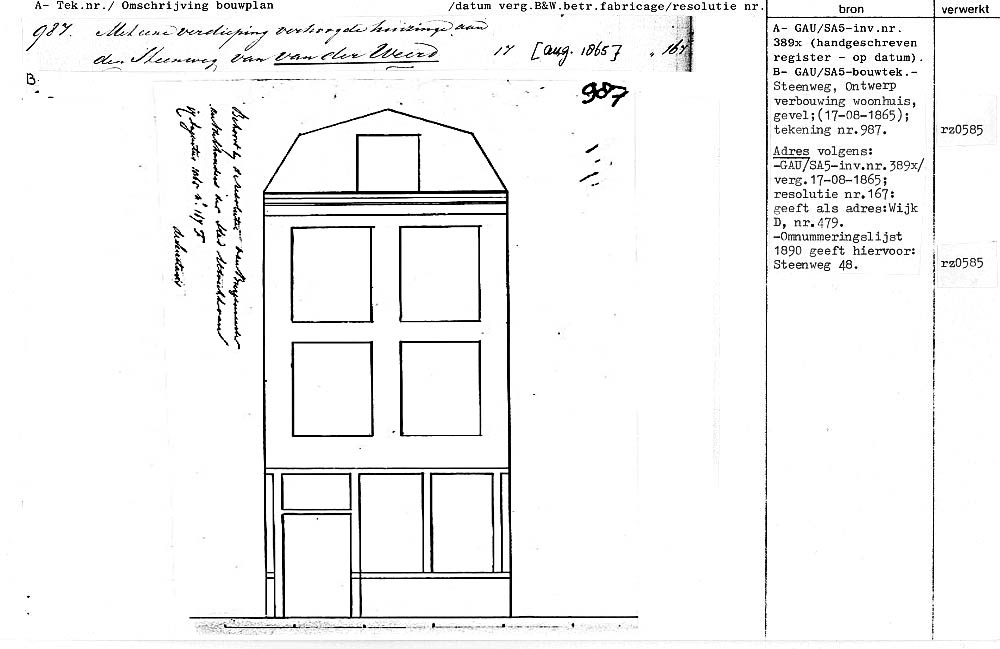 A- Tek.nr./ Omschrijving bouwplan /datum verg.B&W.betr.fabricage/resolutie nr.
987. Met eene verdieping verhoogde huizinge aan
den Steenweg van van der Weerd 17 [aug. 1865] „ 167
B.
987
Behoort bij de resolutie van Burgemeester
en Wethouders der Stad Utrecht van
17 Augustus 1865 No. 167
bron
A- GAU/SA5-inv.nr.
389x (handgeschreven
register - op datum).
B- GAU/SA5-bouwtek.-
Steenweg, Ontwerp
verbouwing woonhuis,
gevel;(17-08-1865);
tekening nr.987.
Adres volgens:
-GAU/SA5-inv.nr.389x/
verg.17-08-1865;
resolutie nr.167:
geeft als adres:Wijk
D, nr.479.
-Omnummeringslijst
1890 geeft hiervoor:
Steenweg 48.
verwerkt
rz0585
rz0585